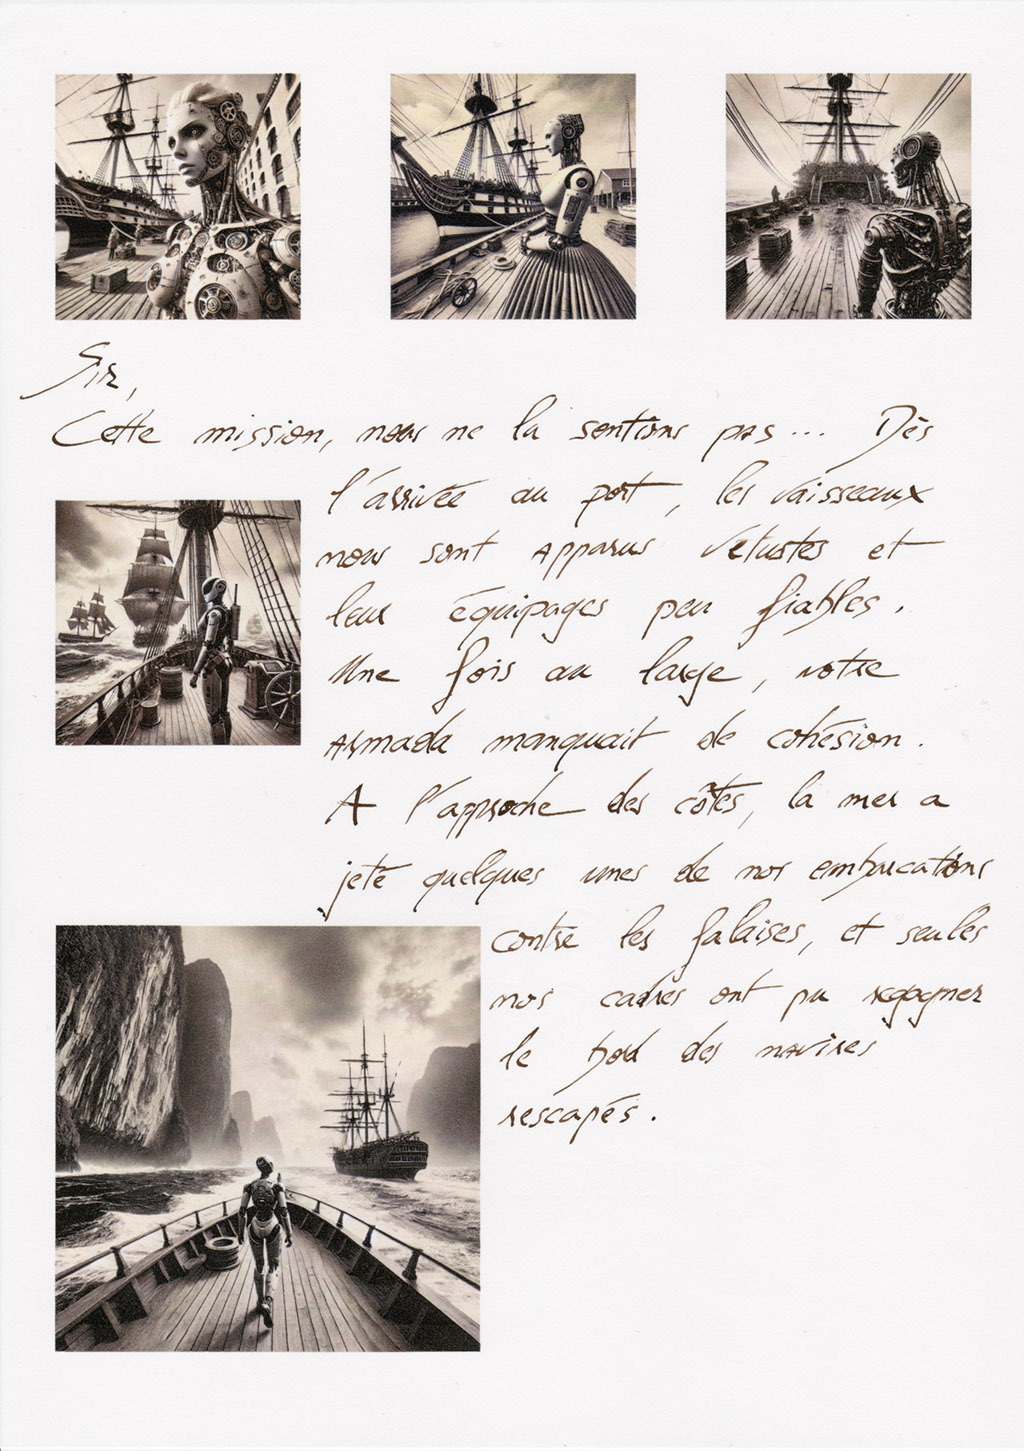 Sir,
Cette mission, nous ne la sentions pas... Dès
l'arrivée au port, les vaisseaux
nous sont apparus vétustes et
leur équipages peu fiables.
Une fois au large, votre
armada manquait de cohésion.
A l'approche des côtes, la mer a
jeté quelques unes de nos embarcations
contre les falaises, et seules
nos cadres ont pu regagner
le bord des navires
rescapés.